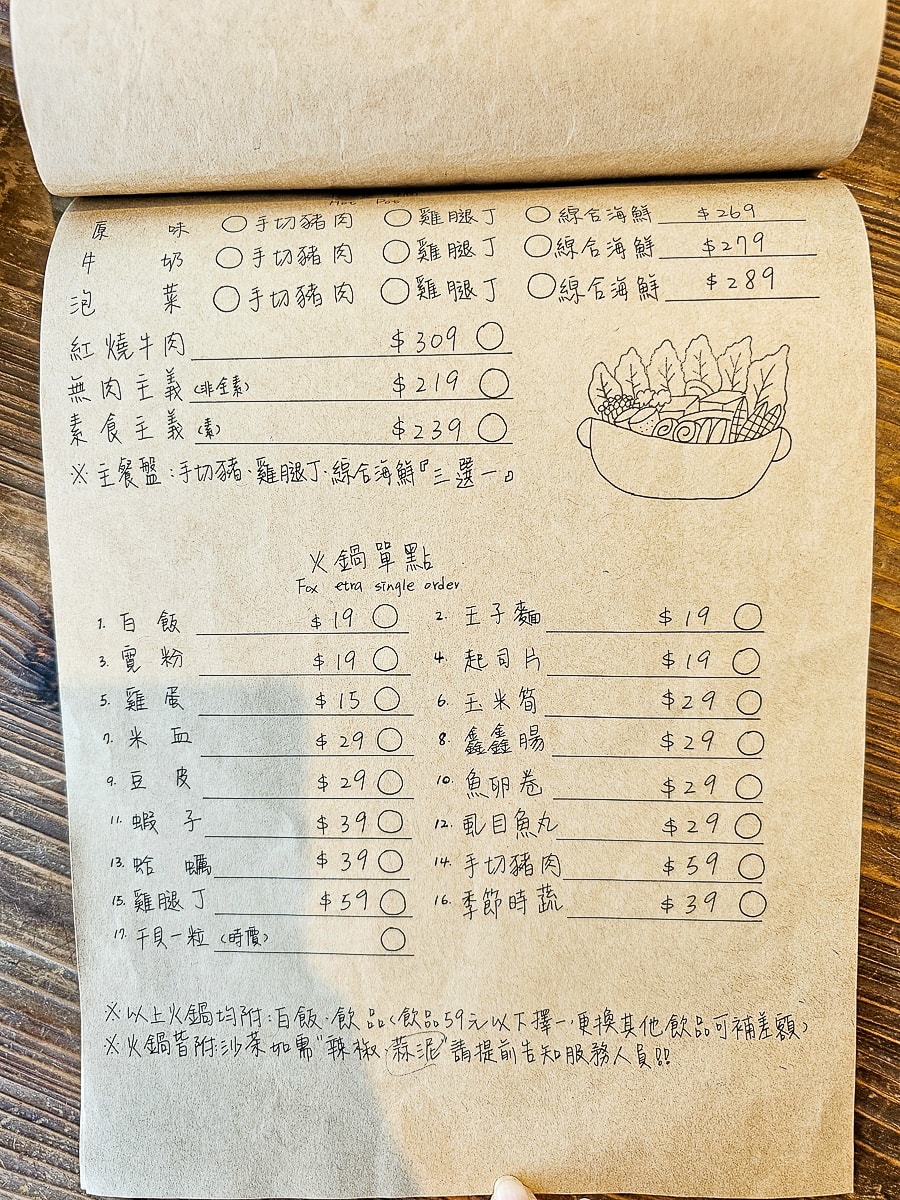 Hot Pot
原味 ○手切豬肉 ○雞腿丁 ○綜合海鮮 $269
牛奶 ○手切豬肉 ○雞腿丁 ○綜合海鮮 $279
泡菜 ○手切豬肉 ○雞腿丁 ○綜合海鮮 $289
紅燒牛肉 $309 ○
無肉主義(非全素) $219 ○
素食主義(素) $239 ○
※主餐盤:手切豬·雞腿丁·綜合海鮮『三選一』
※鍋單點
Fox etra single order
1. 白飯 $19 ○ 2. 王子麵 $19 ○
3. 寬粉 $19 ○ 4. 起司片 $19 ○
5. 雞蛋 $15 ○ 6. 玉米筍 $29 ○
7. 米血 $29 ○ 8. 鑫鑫腸 $29 ○
9. 豆皮 $29 ○ 10. 魚卵卷 $29 ○
11. 蝦子 $39 ○ 12. 虱目魚丸 $29 ○
13. 蛤蠣 $39 ○ 14. 手切豬肉 $59 ○
15. 雞腿丁 $59 ○ 16. 季節時蔬 $39 ○
17. 干貝一粒(時價) ○
※以上火鍋均附:白飯·飲品(飲品59元以下擇一,更換其他飲品可補差額)
※火鍋皆附沙茶如需"辣椒·蒜泥"請提前告知服務人員!!